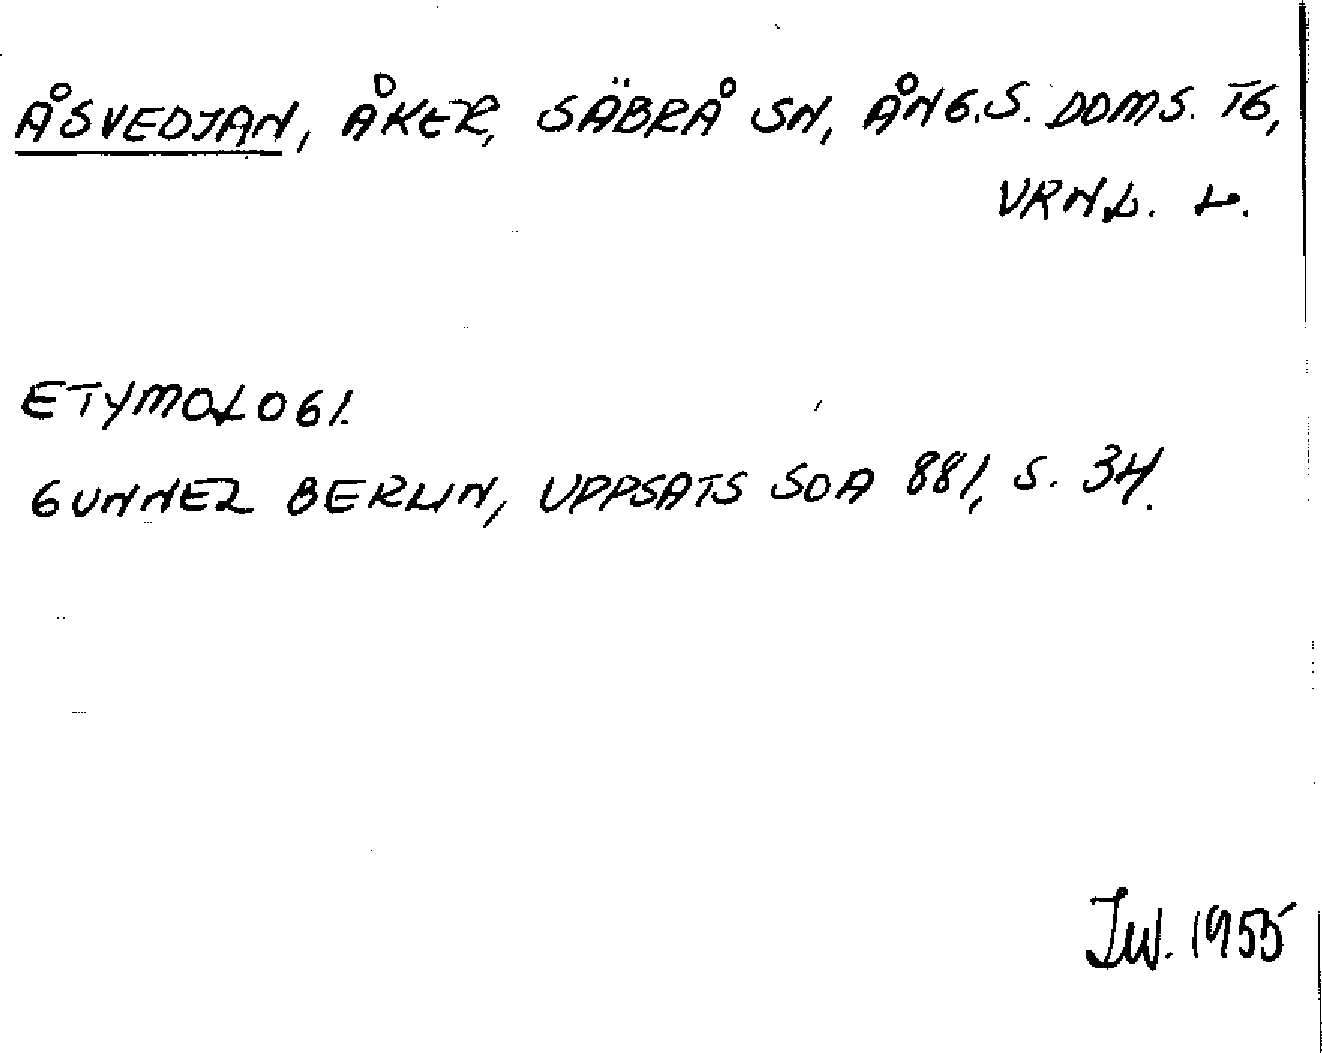 ÅSVEDJAN, ÅKER, SÄBRÅ SN, ÅNG.S. DOMS. TG,
VRNL. L.
ETYMOLOGI.
GUNNER BERLIN, UPPSATS SOA 881, S. 34.
Iw. 1955